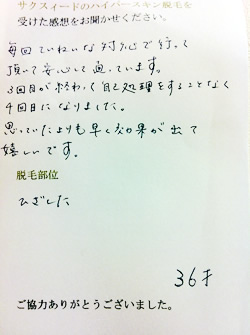 サクスィードのハイパースキン脱毛を
受けた感想をお聞かせください。
毎回ていねいな対応で行って
頂いて安心して通っています。
3回目が終わって自己処理をすることなく
4回目になりました。
思っていたよりも早く効果が出て
嬉しいです。
脱毛部位
ひざした
36才
ご協力ありがとうございました。